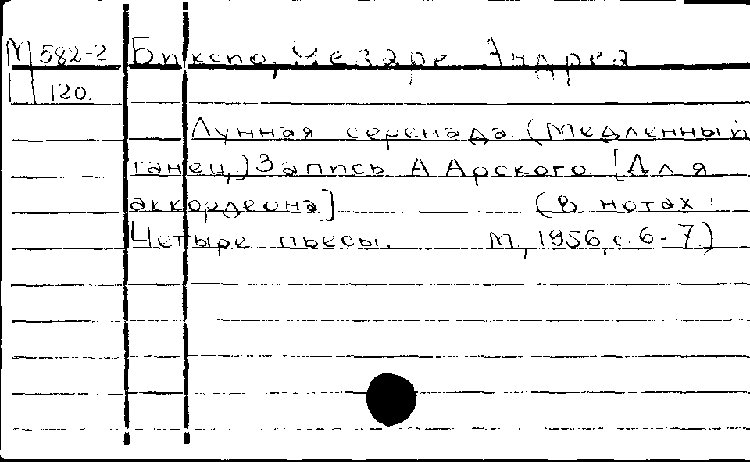 М 582-2 Биксио, Чезаре Андреа
120.
Лунная серенада (Медленный
танец.) Запись А Арского [Для
аккордеона] (В нотах:
Четыре пьесы. М., 1956, с. 6-7)